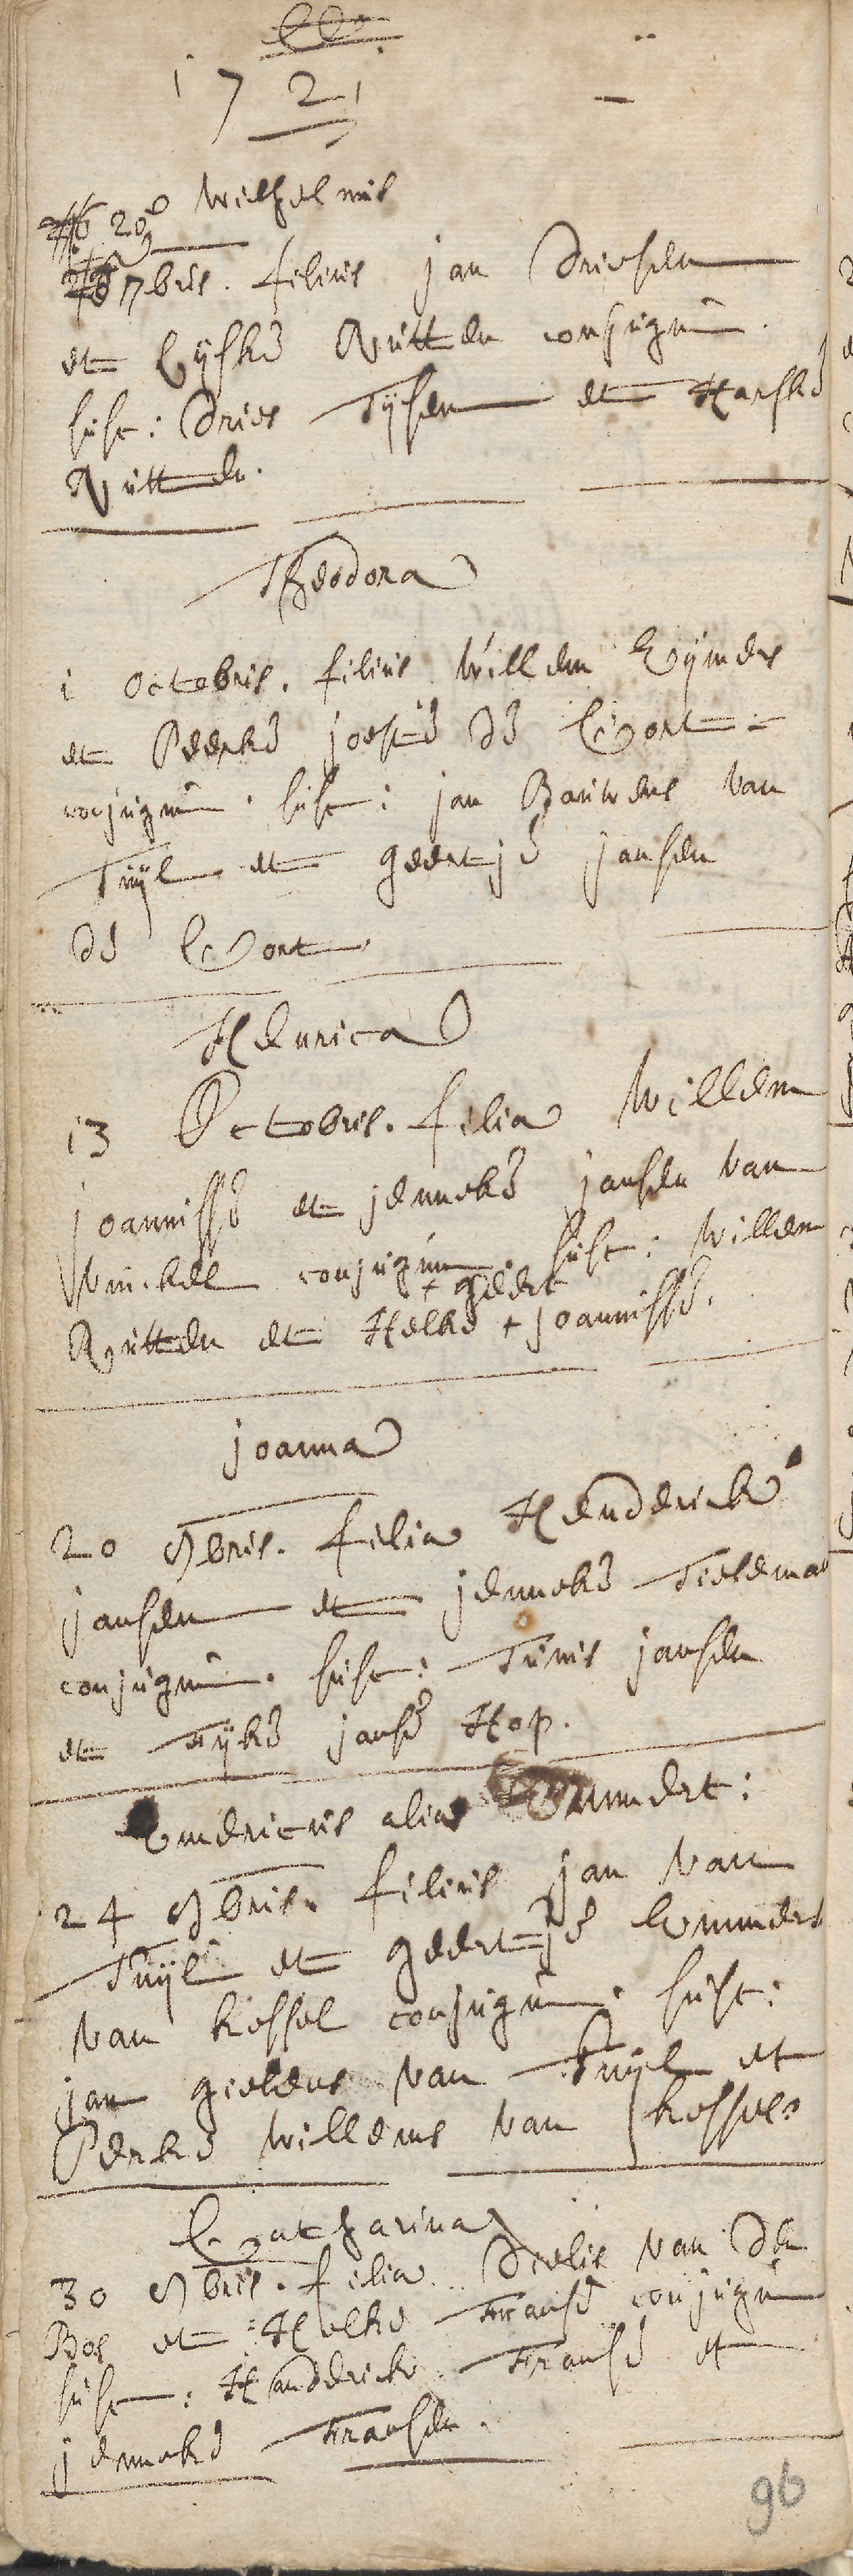 1721
Wilhelmus
29
7bris. filius jan Driesen
et Lijske Rutten conjugum.
susc: Dries Tijsen et Harske
Rutten.
Theodora
1 octobris. filius Willem Rijnders
et Peerke joeste de Cort
conjugum. susc: jan Bauwens van
Tuijl et geertje jansen
de Cort
Henrica
13 Octobris. filia Willem
joannisse et jenneke jansen van
Vinckel conjugum. susc: Willem
+ geert
Rutten et Helke + joannisse.
joanna
20 9bris. filia Hendderick
jansen et jenneke Tielema
conjugum. susc: Tunis jansen
et Fijke janse Hop.
Emdericus alias Emmert:
24 9bris. filius jan van
Tuijl et geertje Emmers
van kessel conjugum. susc:
jan gielens van Tuijl et
Perke willems van kessel
Catharina
30 9bris. filia Dielis van den
Bos et Helke Franse conjugum
susc: Handderick Franse et
jenneke Fransen.
96